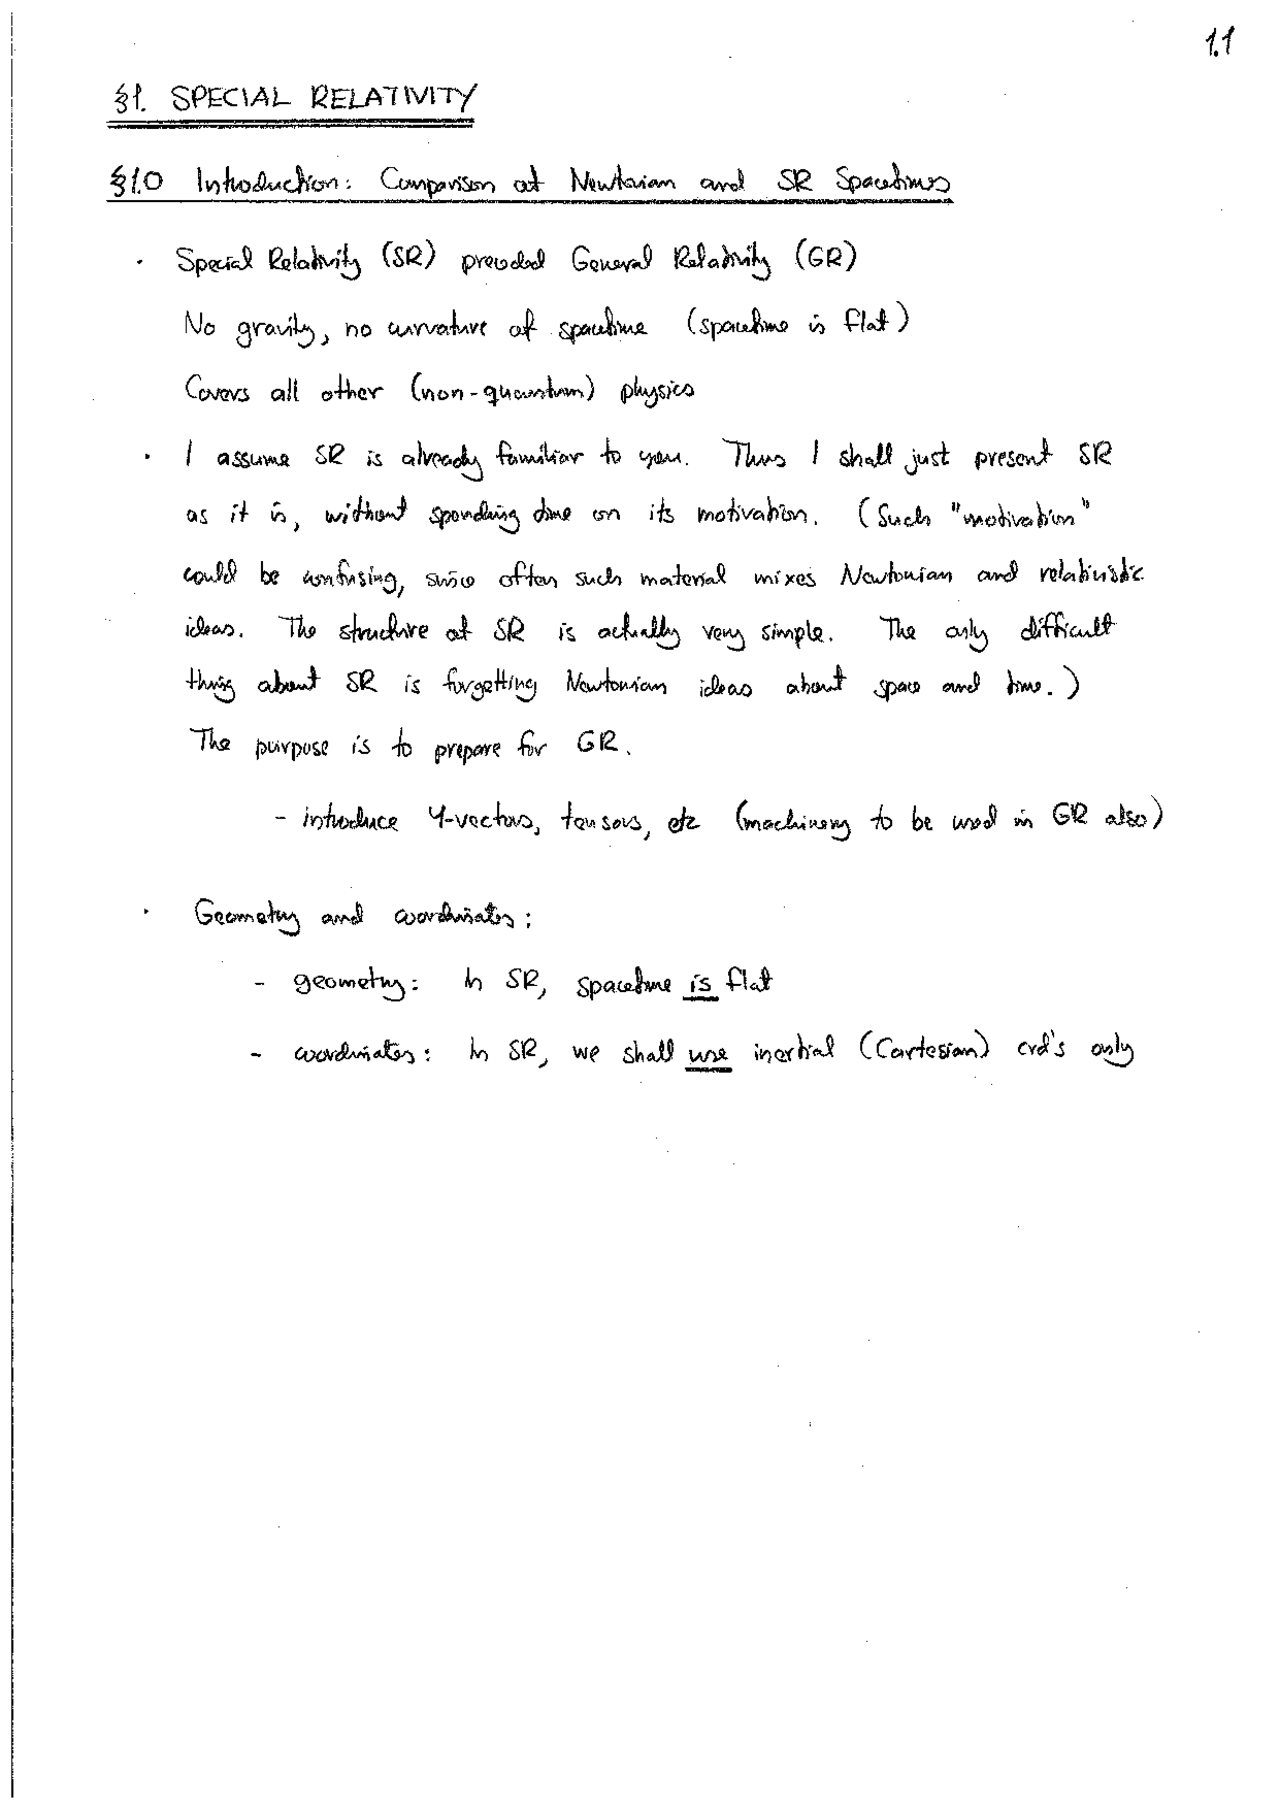 1.1
§1. SPECIAL RELATIVITY
§1.0 Introduction: Comparison of Newtonian and SR Spacetimes
· Special Relativity (SR) preceded General Relativity (GR)
No gravity, no curvature of spacetime (spacetime is flat)
Covers all other (non-quantum) physics
· I assume SR is already familiar to you. Thus I shall just present SR
as it is, without spending time on its motivation. (Such "motivation"
could be confusing, since often such material mixes Newtonian and relativistic
ideas. The structure of SR is actually very simple. The only difficult
thing about SR is forgetting Newtonian ideas about space and time.)
The purpose is to prepare for GR.
- introduce 4-vectors, tensors, etc (machinery to be used in GR also)
· Geometry and coordinates:
- geometry: In SR, spacetime is flat
- coordinates: In SR, we shall use inertial (Cartesian) crd's only